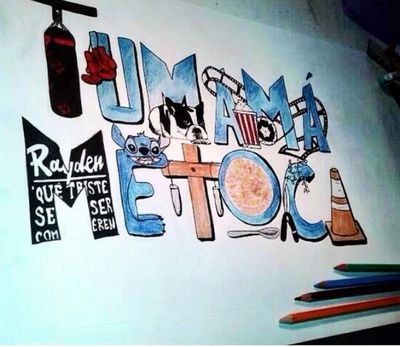 TUMAMÁ
METOCA
Rayden
'QUÉ TRISTE
SE SER
COM EREN